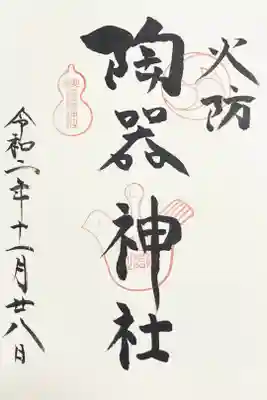 火防
陶器神社
令和二年十一月廿八日